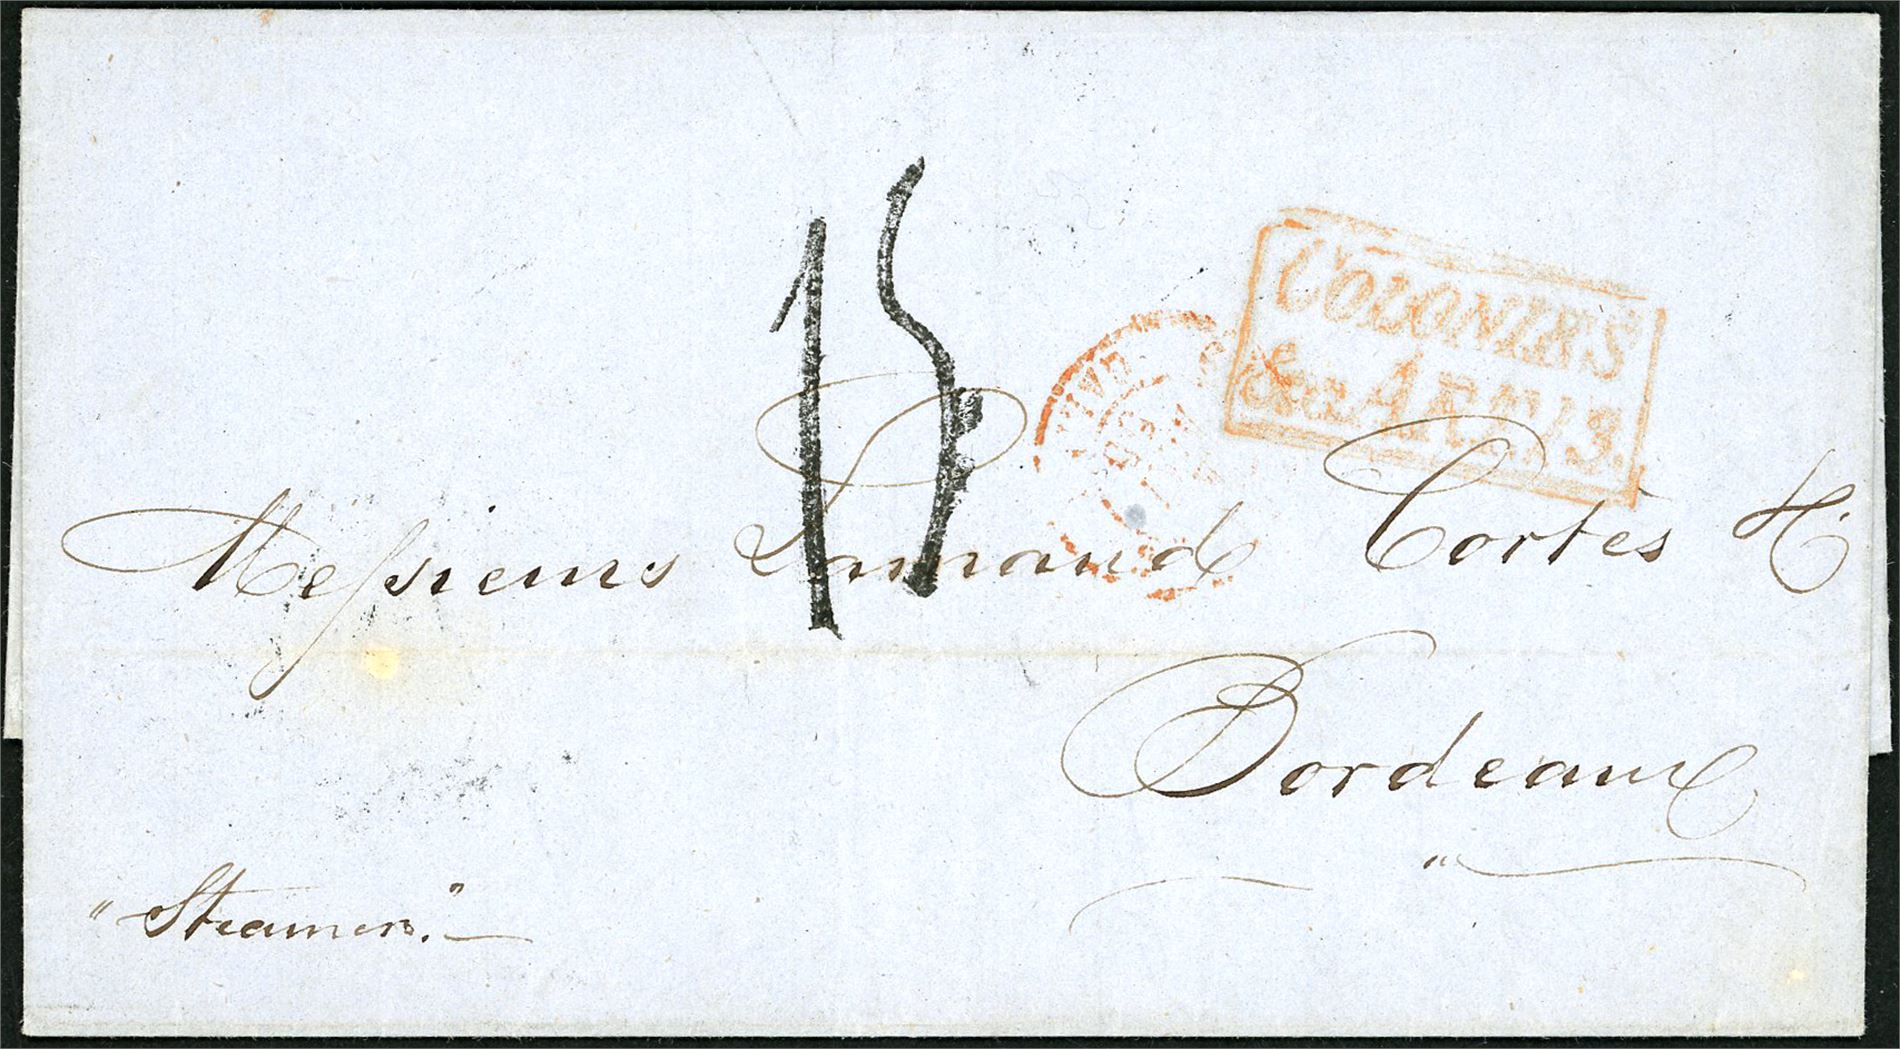 15
COLONIES
&c. ART. 13.
Messieurs Lamaud Cortès
Bordeaux
"Steamers."